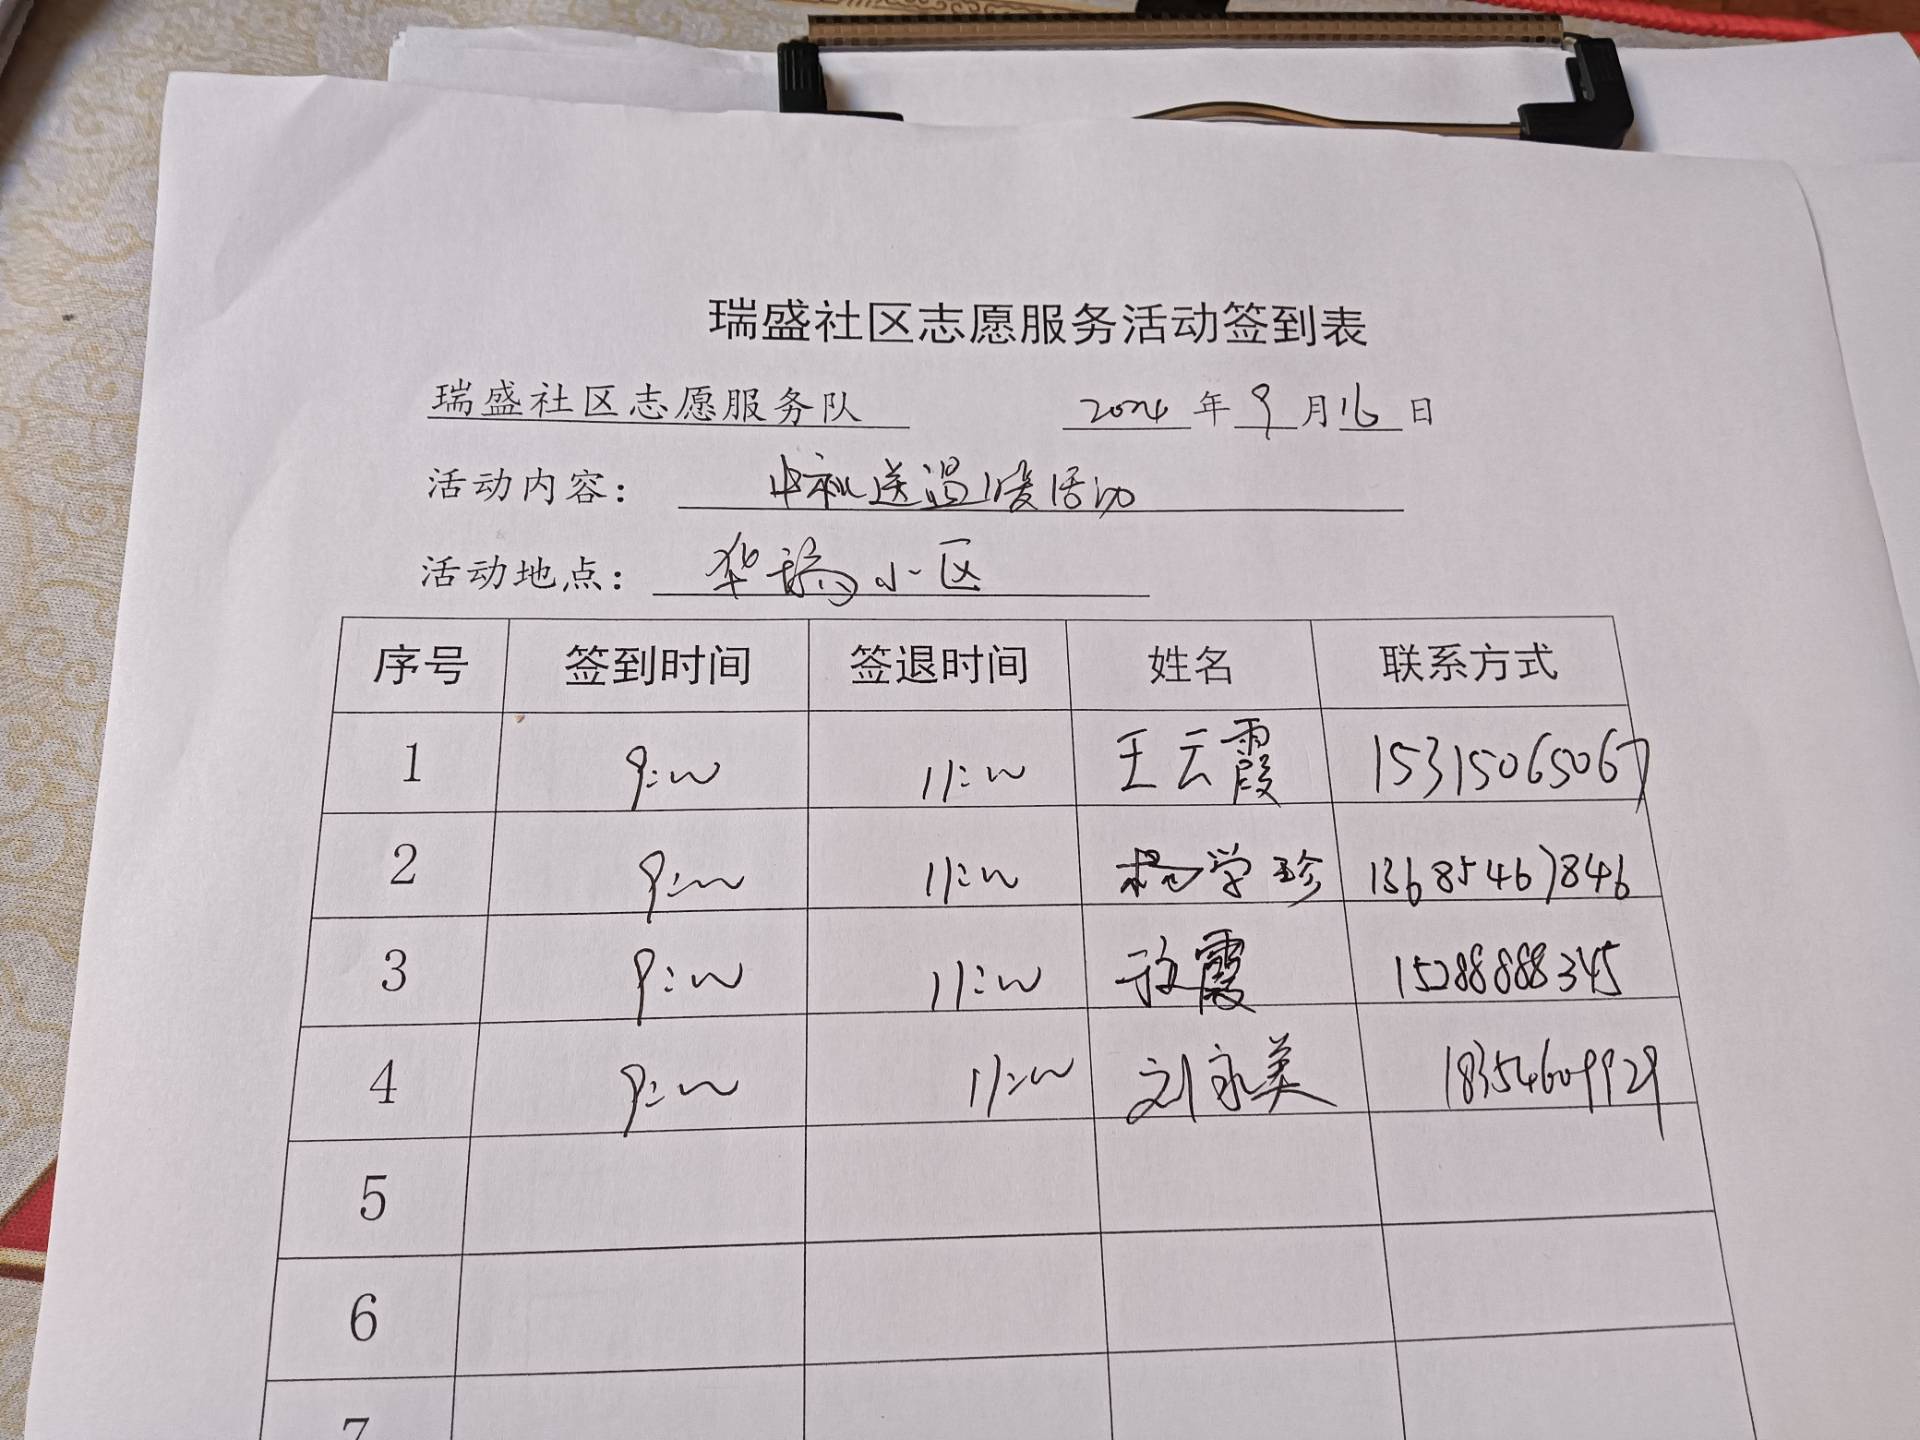 瑞盛社区志愿服务活动签到表
瑞盛社区志愿服务队 2024 年 9 月 16 日
活动内容： 中秋送温暖活动
活动地点： 华瑞小区
序号 签到时间 签退时间 姓名 联系方式
1 9:00 11:00 王云霞 15315065067
2 9:00 11:00 杨学珍 13685467846
3 9:00 11:00 霞 15288888345
4 9:00 11:00 刘永美 18354609929
5
6
7